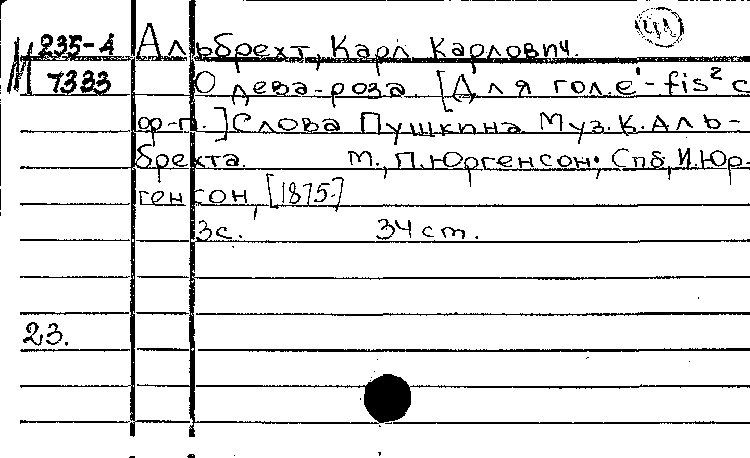 М 235-А Альбрехт, Карл Карлович.
7333 О дева-роза. [Для гол. e¹-fis² с
ф-п.] Слова Пушкина. Муз. К. Аль-
брехта. М., П. Юргенсон; Спб, И. Юр-
генсон, [1875.]
3с. 34 cm.
23.